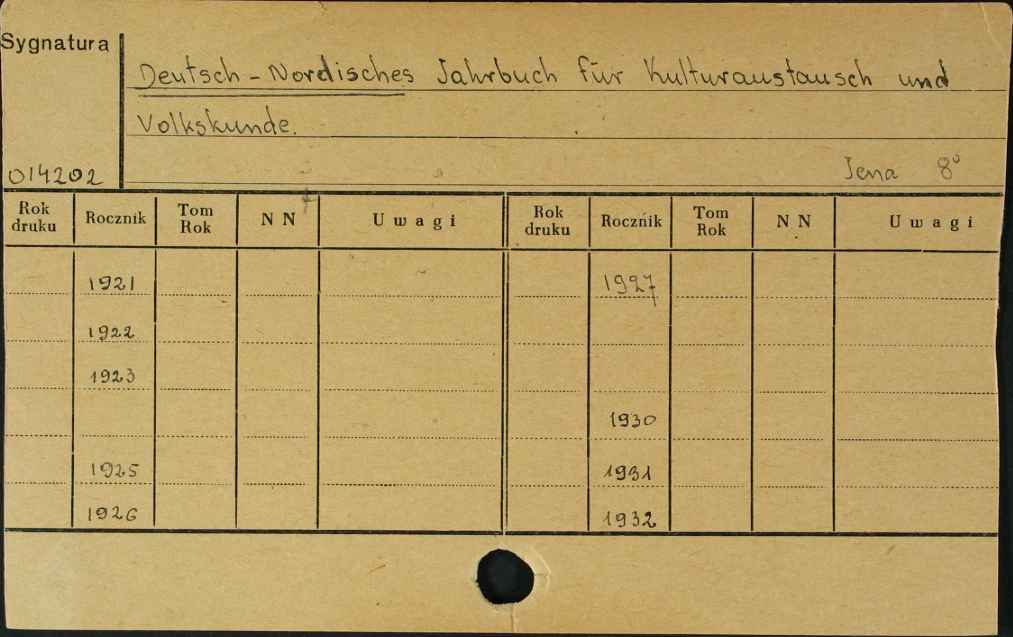 Sygnatura
Deutsch-Nordisches Jahrbuch für Kulturaustausch und
Volkskunde.
014202
Jena 8°
Rok druku Rocznik Tom Rok N N Uwagi Rok druku Rocznik Tom Rok N N Uwagi
1921 1927
1922
1923
1930
1925 1931
1926 1932